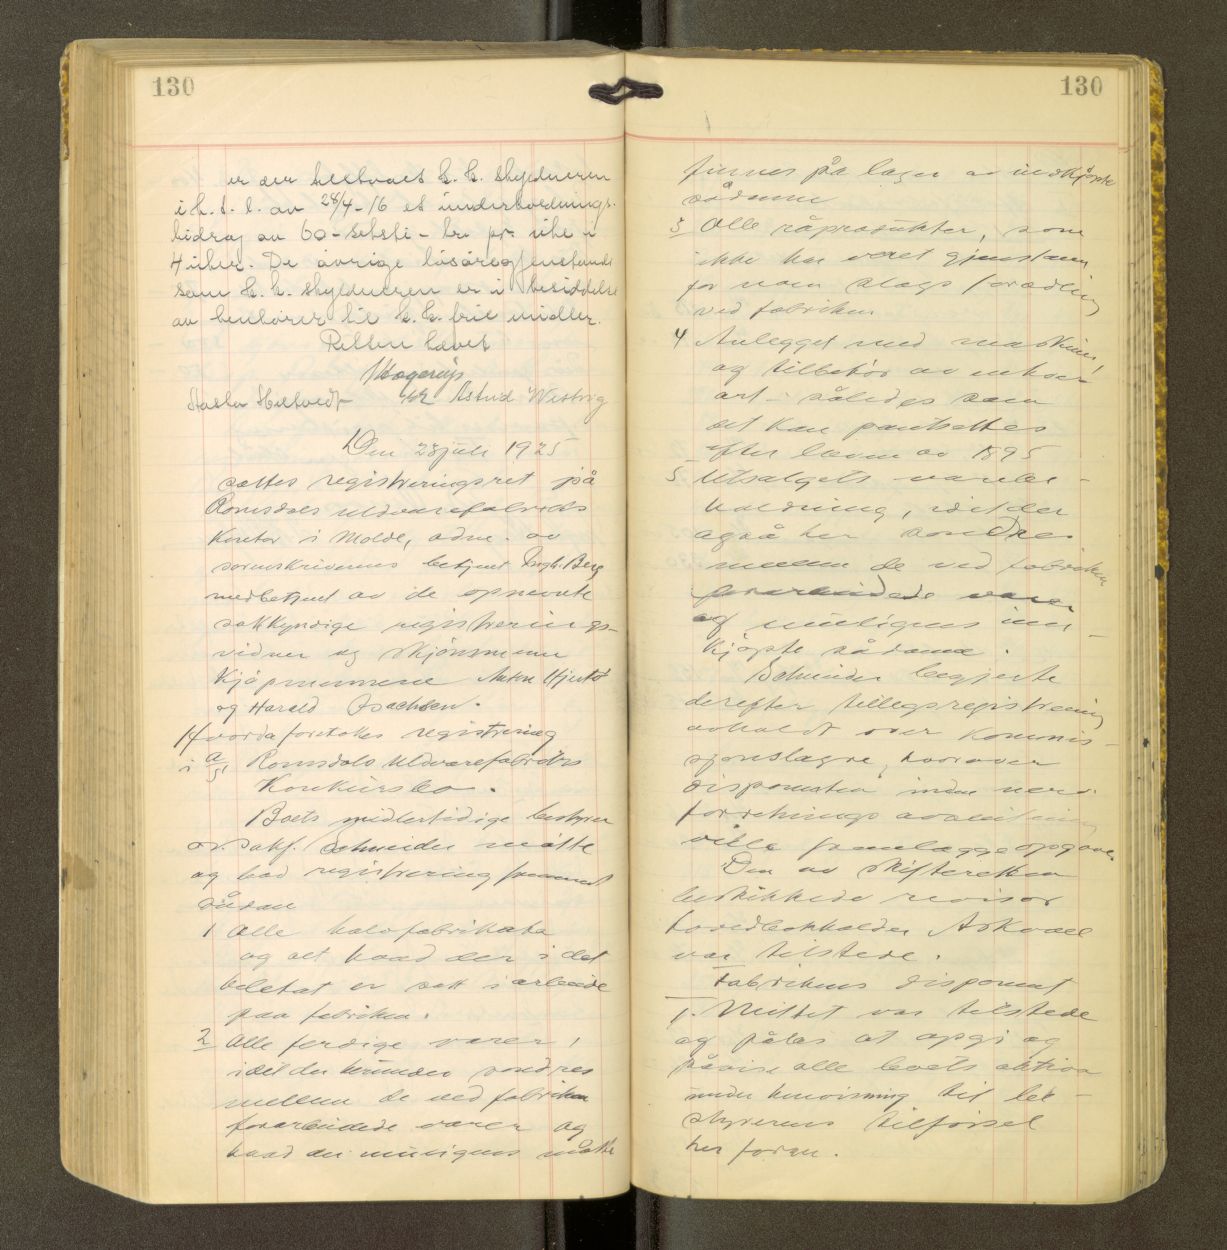 130
er der tilstaaet k. k. skyldneren
i h. t. l. av 28/4-16 et underholdnings-
bidrag av 60 - seksti - kr pr. uke i
4 uker. De øvrige løsøregjenstande
som k. k. skyldneren er i besiddelse
av henhører til k. k. frie midler.
Retten hævet
Astrid Westvig
Den 28 juli 1925
sattes registreringsret på
Romsdals Uldvarefabriks
Kontor i Molde, adm. av
sorenskriverens betjent Ingb. Berg
medbetjent av de opnevnte
sakkyndige registrerings-
vidner og skjønsmenn
Kjøpmennene Anton Hjertø
og Harald Isachsen.
Hvorda foretokes registrering
i a/s Romsdals Uldvarefabriks
Konkursbo.
Boets midlertidige bestyrer
o.r. sakf. Schneider møtte
og bad registrering fremmet
sådan
1 Alle halvfabrikata
og alt hvad der i det
heletat er satt i arbeide
paa fabriken.
2 Alle ferdige varer,
idet der herunder sondres
mellem de ved fabriken
forarbeidede varer og
hvad der muligens måtte
130
finnes på lager av indkjøpte
sådanne
3 Alle råprodukter, som
ikke har været gjenstann
for noen slags foredling
ved fabriken
4 Anlegget med maskiner
og tilbehør av enhver
art - således som
det kan pantsettes
efter loven av 1895
5 Utsalgets varebe-
holdning, idet der
også her sondres
mellem de ved fabriken
forarbeidede varer
og muligens inn-
kjøpte sådanne.
Schneider begjerte
derefter tillegsregistrering
avholdt over Kommis-
sjonslagre, hvorover
disponenten inden nerv.
forretnings avslutning
ville fremlegge opgave.
Den av skifteretten
beskikkede revisor
hovedbokholder Askvall
var tilstede.
Fabrikens disponent
J. Mittet var tilstede
og pålas at opgi og
påvise alle boets aktiva
under henvisning til be-
styrerens tilførsel
her foran.